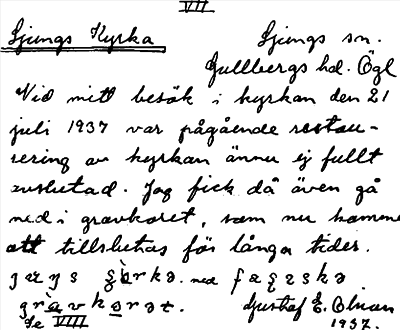 VII
Ljungs Kyrka Ljungs sn.
Gullbergs hd. Ögl
Vid mitt besök i kyrkan den 21
juli 1937 var pågående restau-
rering av kyrkan ännu ej fullt
avslutad. Jag fick då även gå
ned i gravkoret, som nu komme
att tillslutas för långa tider.
ned
Gustaf E. Olsson
Se VIII 1937.